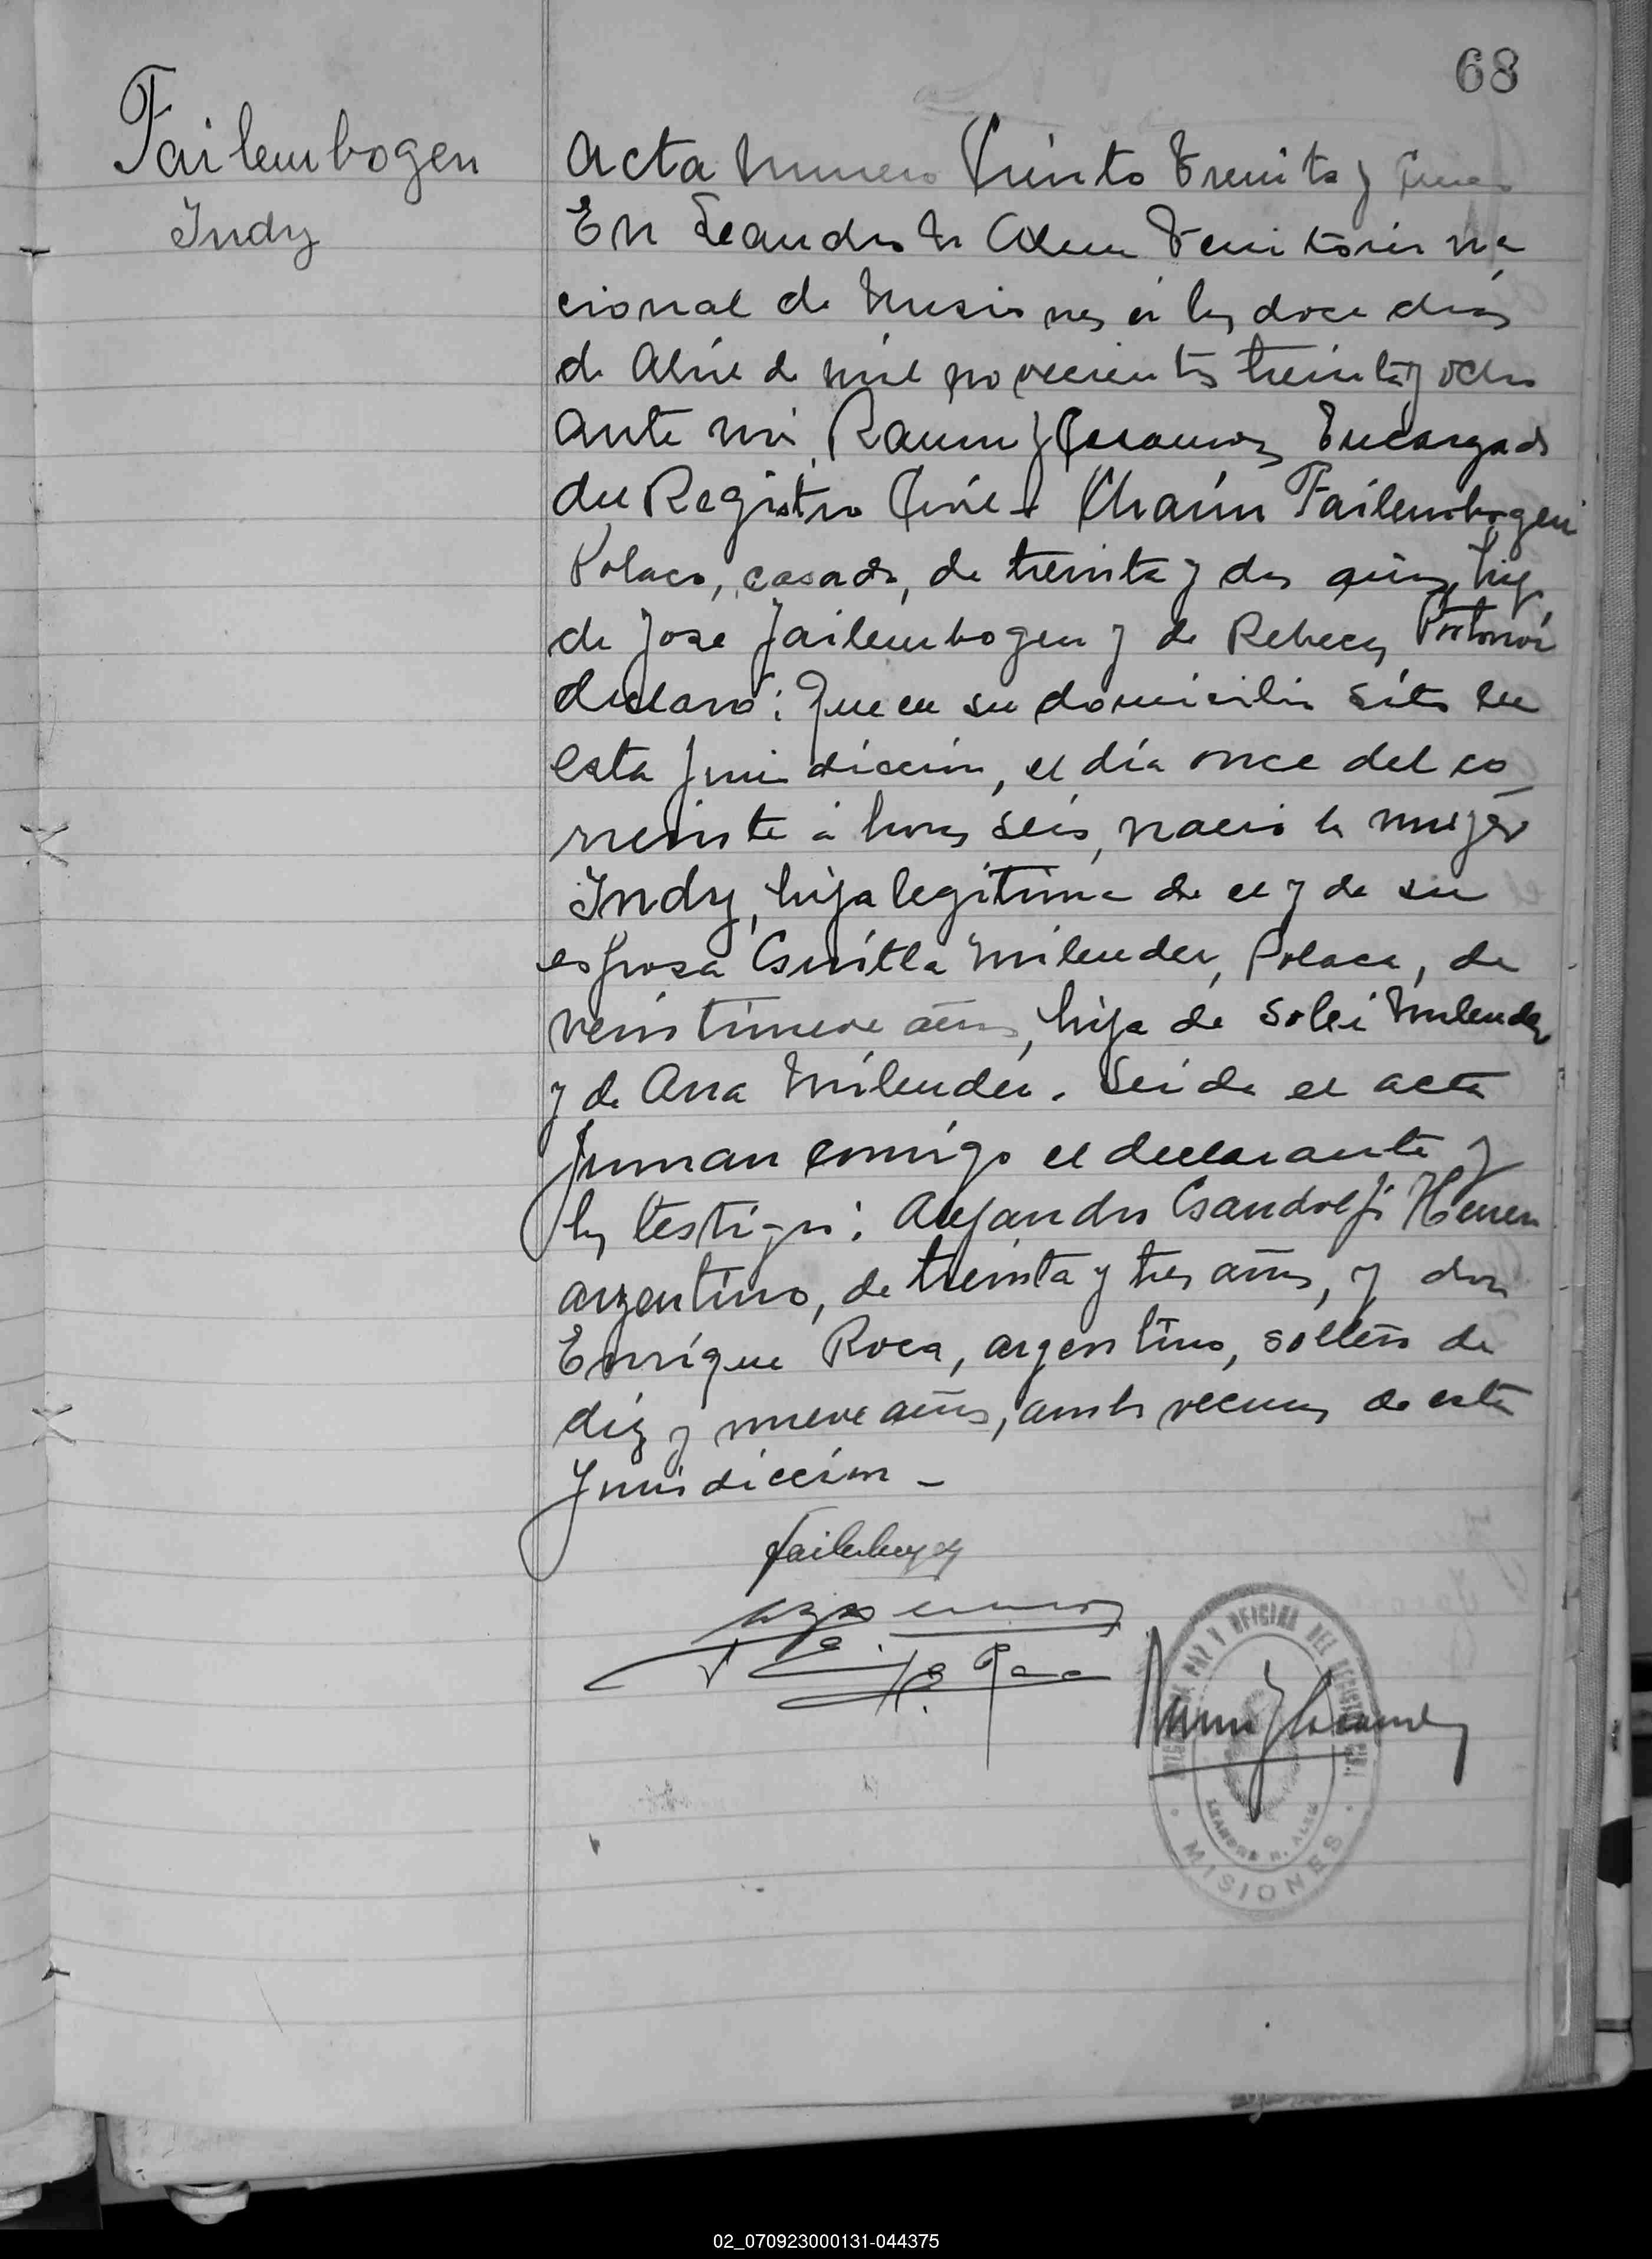 68
Failembogen
Indy
Acta numero Ciento Treinta y
En Leandro N Alem Territorio na
cional de Misiones a los doce dias
de Abril de mil novecientos treinta y ocho
ante mi, Ramon J Encargado
del Registro Civil Chaim Failembogen
Polaco, casado, de treinta y dos años, hijo
de Jose Failembogen y de Rebeca
declaró: Que en su domicilio sito en
esta jurisdiccion, el día once del co
rriente a horas seis, nacio la mujer
Indy, hija legitima de el y de su
esposa Milender, Polaca, de
veintinueve años, hija de Milender
y de Ana Milender. Leida el acta
firman conmigo el declarante y
los testigos: Alejandro
argentino, de treinta y tres años, y don
Enrique Roca, argentino, soltero de
diez y nueve años, ambos vecinos de esta
Jurisdiccion _
E. Roca
JUZGADO DE PAZ Y OFICINA DEL REGISTRO CIVIL
LEANDRO N. ALEM
MISIONES
02_070923000131-044375